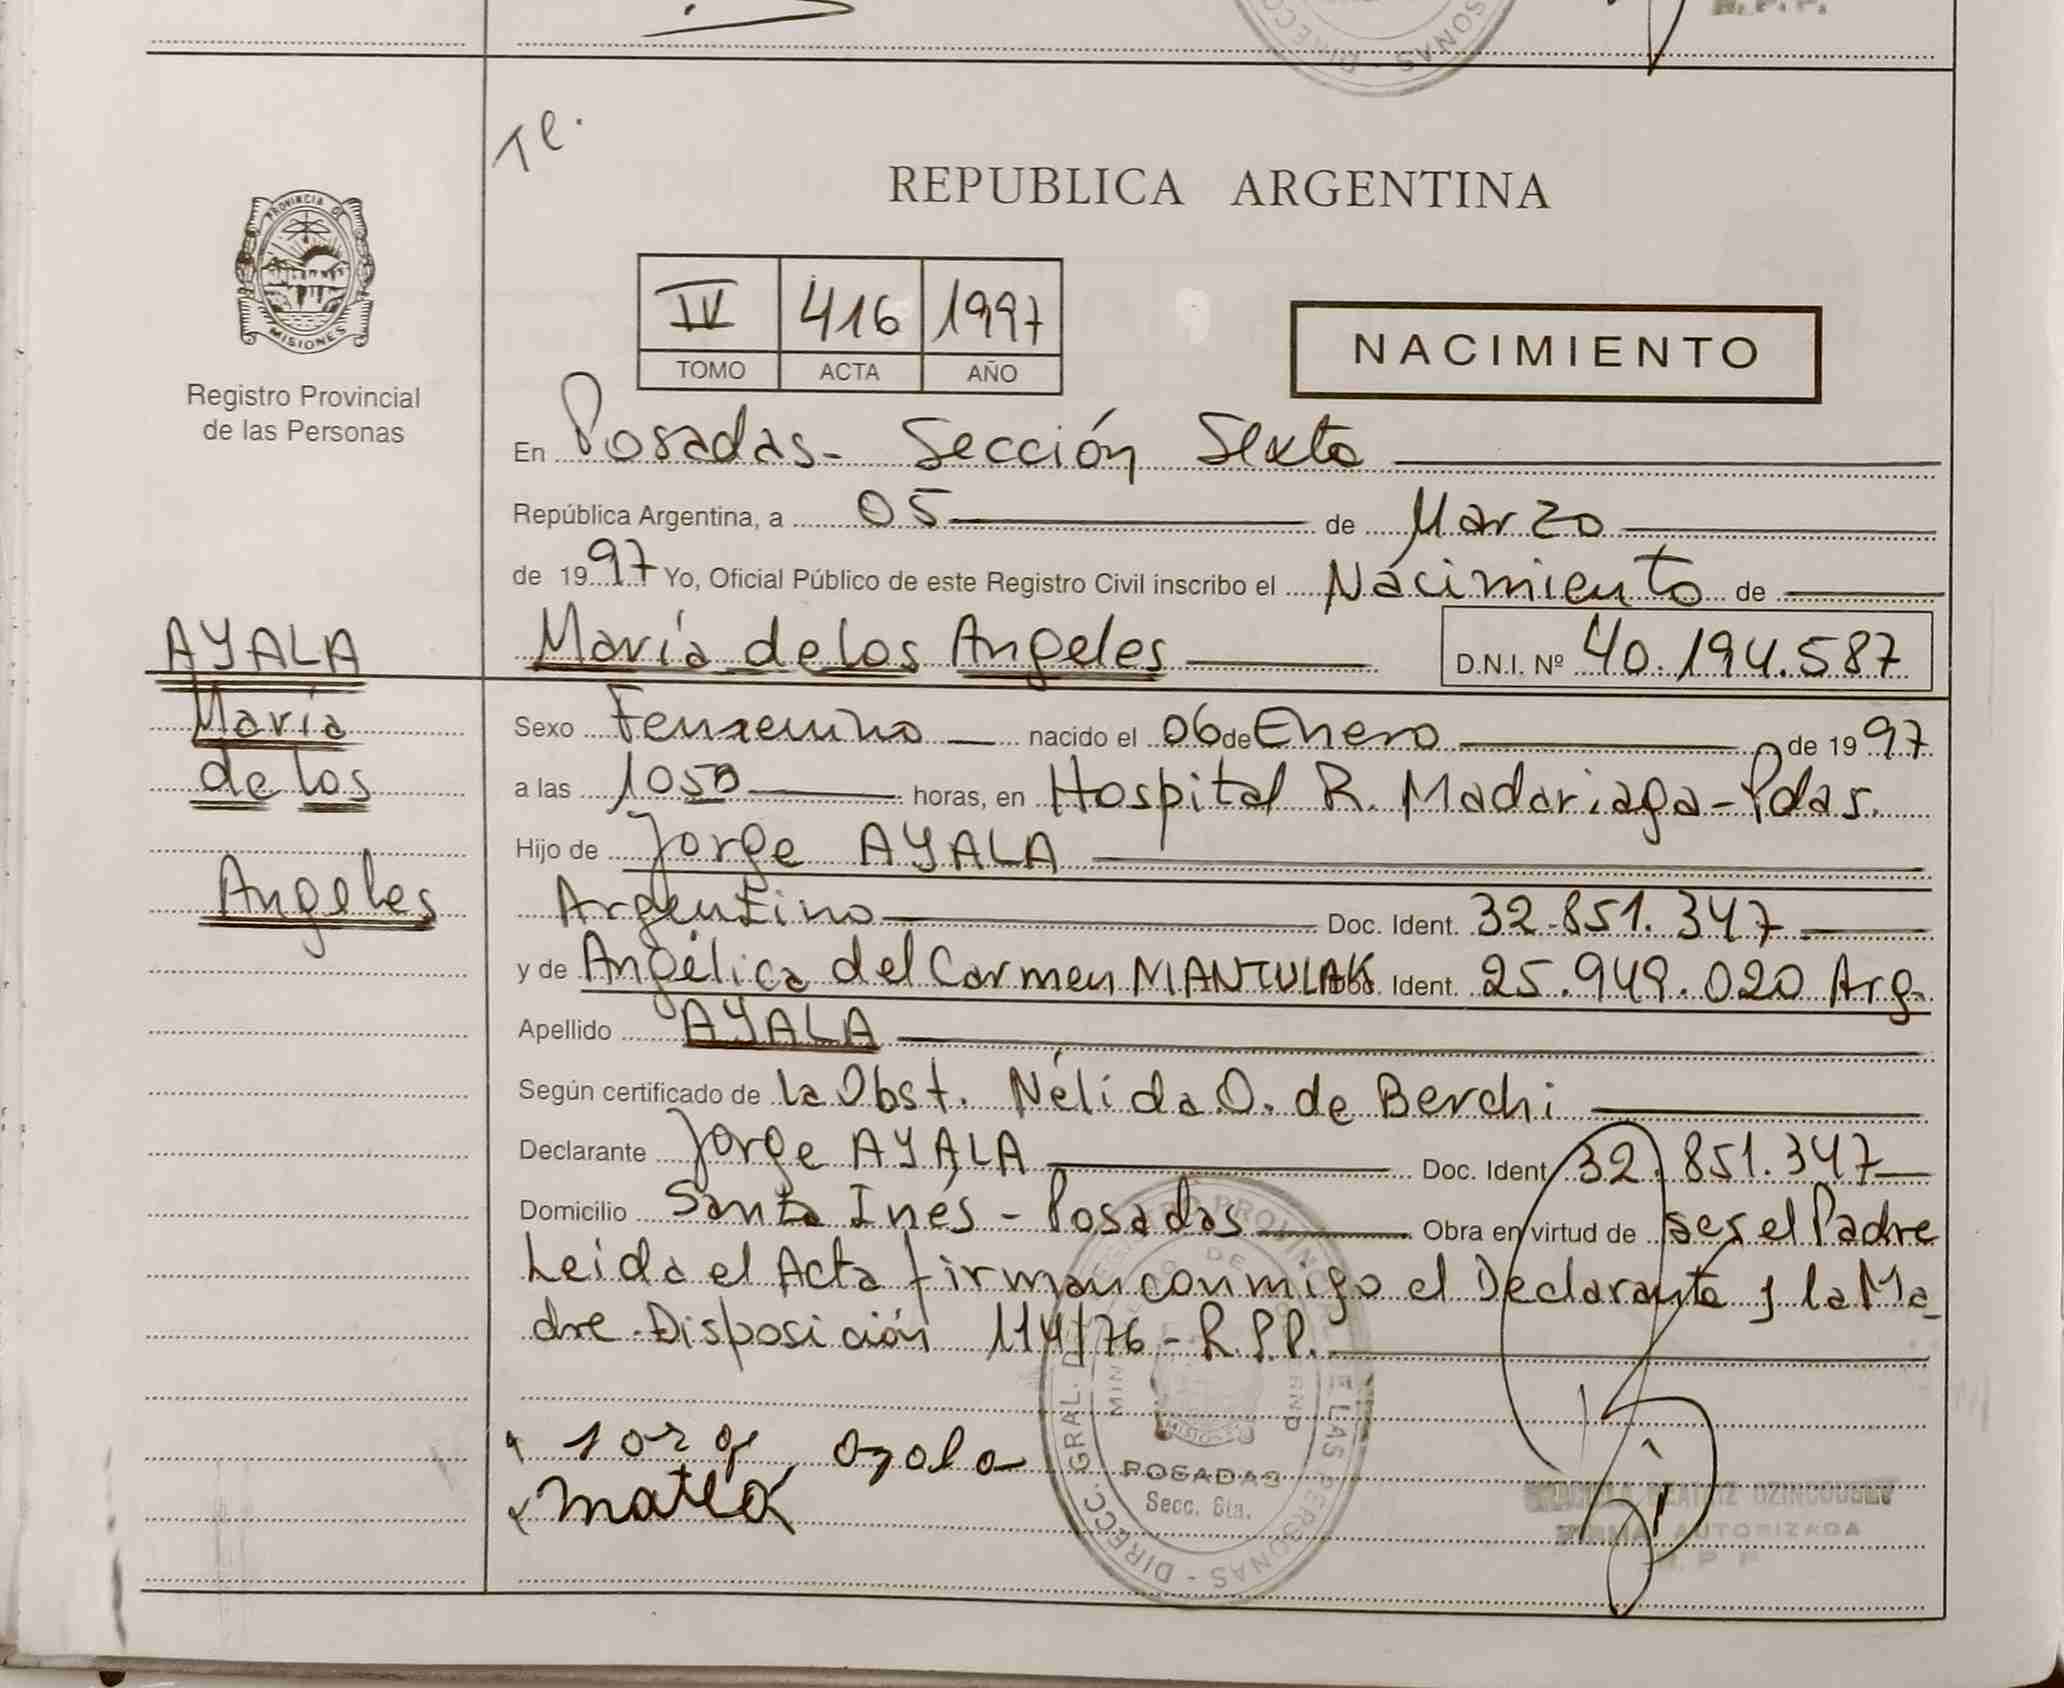 Te.
PROVINCIA DE
MISIONES
Registro Provincial
de las Personas
REPUBLICA ARGENTINA
IV 416 1997
TOMO ACTA AÑO
NACIMIENTO
En Posadas - Sección Sexta
República Argentina, a 05 de Marzo
de 1997 Yo, Oficial Público de este Registro Civil inscribo el Nacimiento de
AYALA
María
de los
Angeles
María de los Angeles D.N.I. Nº 40.194.587
Sexo Femenino nacido el 06 de Enero de 1997
a las 1050 horas, en Hospital R. Madariaga - Pdas.
Hijo de Jorge AYALA
Argentino Doc. Ident. 32.851.347
y de Angélica del Carmen MANTULAK Doc. Ident. 25.949.020 Arg.
Apellido AYALA
Según certificado de la Obst. Nélida O. de Berchi
Declarante Jorge AYALA Doc. Ident. 32.851.347
Domicilio Santa Inés - Posadas Obra en virtud de ser el Padre
Leida el Acta firman conmigo el Declarante y la Ma-
dre. Disposición 114/76 - R.P.P.
POSADAS
Secc. 6ta.
AUTORIZADA